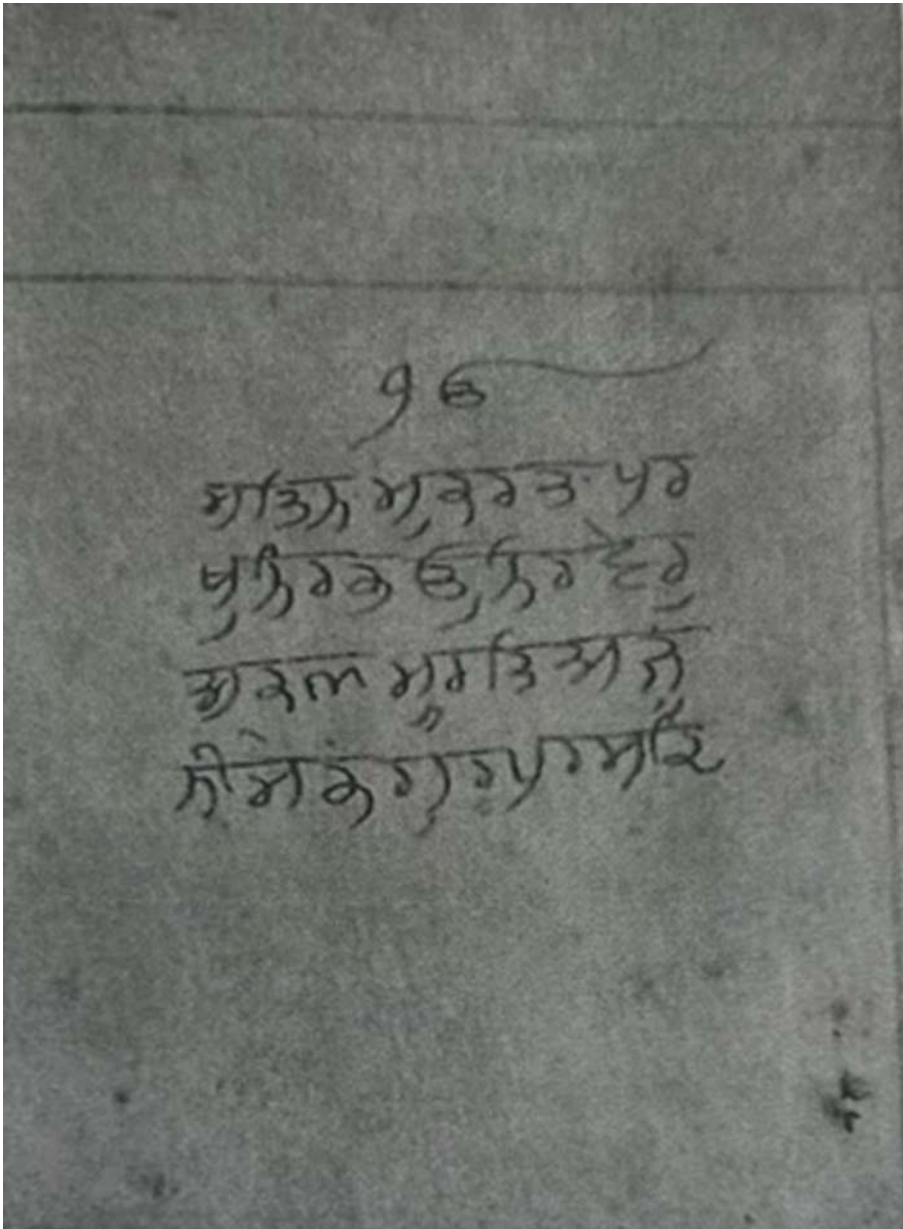 ੴ
ਸਤਿਨਮੁਕਰਤਪਰ
ਖੁਨਿਰਕਉਨਿਰਵੇਰੁ
ਅਕਲਮੂਰਤਿਅਜੂ
ਨੀਸੇਭੰਗੁਰਪਰਸਦਿ